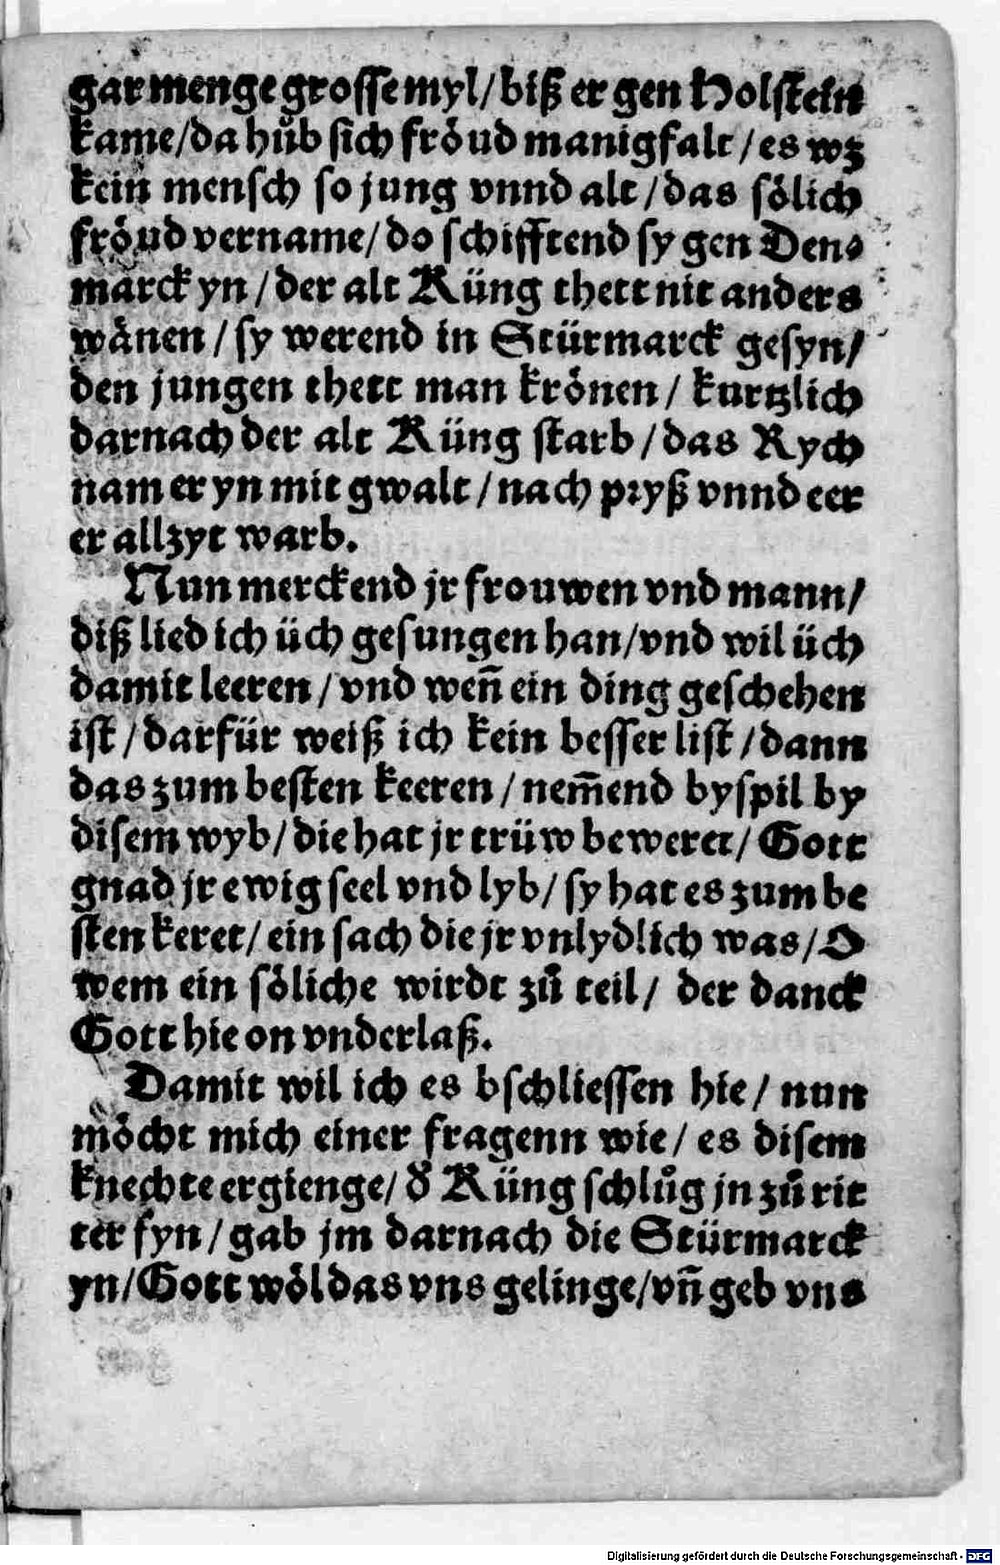 gar menge grosse myl/biß er gen Holstein
kame/da hůb sich fröud manigfalt/es wz
kein mensch so jung vnnd alt/das sölich
fröud vername/do schifftend sy gen Den⸗
marck yn/der alt Küng thett nit anders
wänen/sy werend in Stürmarck gesyn/
den jungen thett man krönen/kurtzlich
darnach der alt Küng starb/das Rych
nam er yn mit gwalt/nach pryß vnnd eer
er allzyt warb.
Nun merckend jr frouwen vnd mann/
diß lied ich üch gesungen han/vnd wil üch
damit leeren/vnd weñ ein ding geschehen
ist/darfür weiß ich kein besser list/dann
das zum besten keeren/nem̄end byspil by
disem wyb/die hat jr trüw beweret/Gott
gnad jr ewig seel vnd lyb/sy hat es zum be
sten keret/ein sach die jr vnlydlich was/O
wem ein söliche wirdt zů teil/der danck
Gott hie on vnderlaß.
Damit wil ich es bschliessen hie/nun
möcht mich einer fragenn wie/es disem
knechte ergienge/d̕ Küng schlůg jn zů rit
ter fyn/gab jm darnach die Stürmarck
yn/Gott wöl das vns gelinge/vñ geb vns
Digitalisierung gefördert durch die Deutsche Forschungsgemeinschaft - DFG